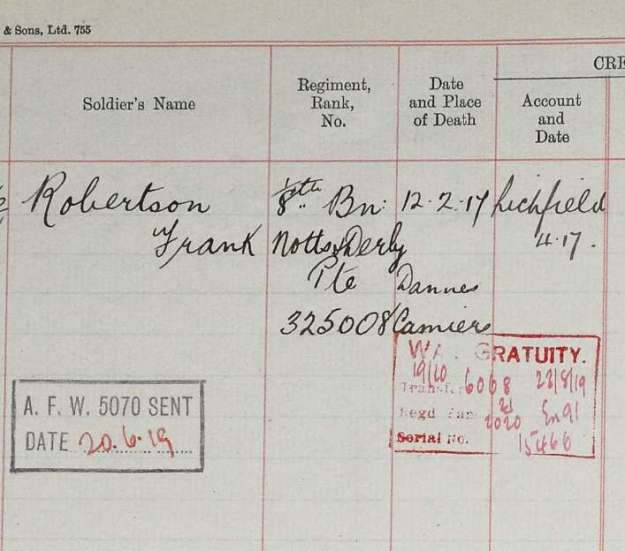 & Sons, Ltd. 755
CRE
Soldier's Name
Regiment,
Rank,
No.
Date
and Place
of Death
Account
and
Date
Robertson
Frank
8th Bn:
Notts & Derby
Pte
325008
12.2.17
Dannes
Camiers
Lichfield
4.17.
A. F. W. 5070 SENT
DATE 20.6.19
GRATUITY.
19/20 6068 22/8/19
Regd
2020
Serial No. 15466